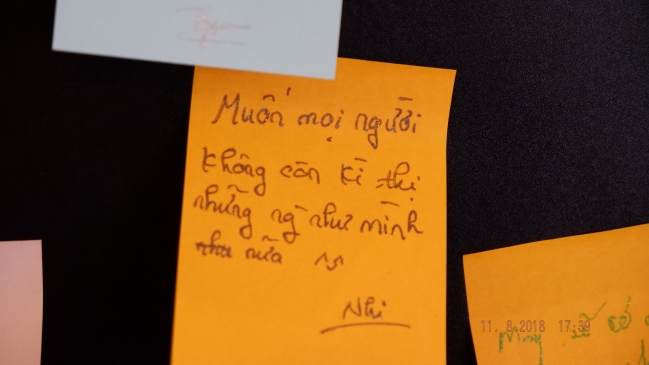 Muốn mọi người
không còn kì thị
những ng như mình
nữa
Nhi
11. 8.2018 17:39